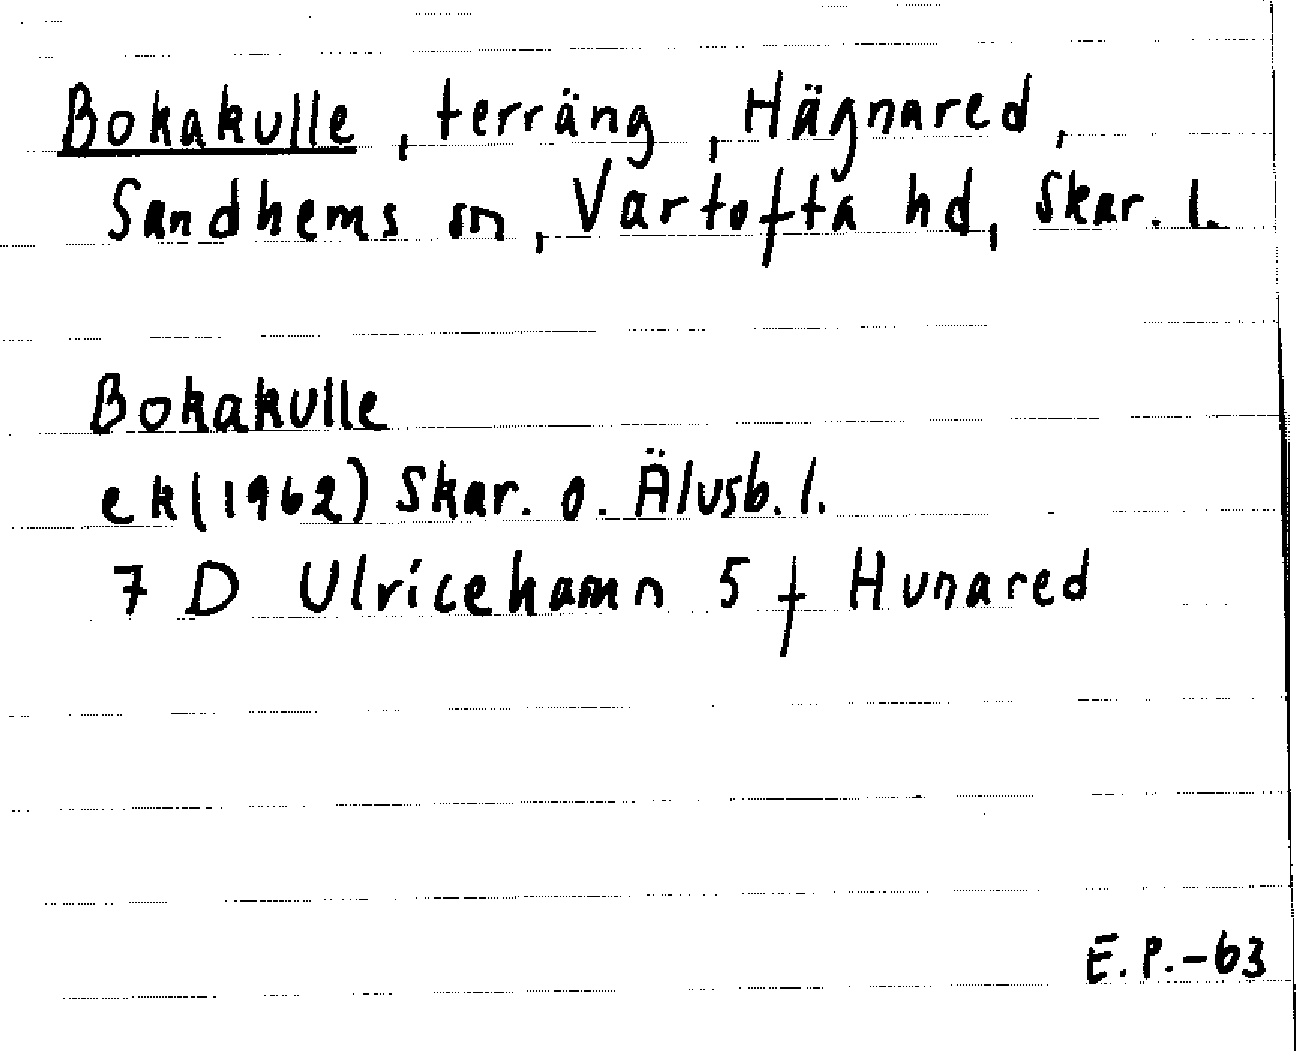 Bokakulle, terräng, Hägnared,
Sandhems sn, Vartofta hd, Skar. l.
Bokakulle
ek (1962) Skar. o. Älvsb. l.
7 D Ulricehamn 5 f Hunared
E.P.-63